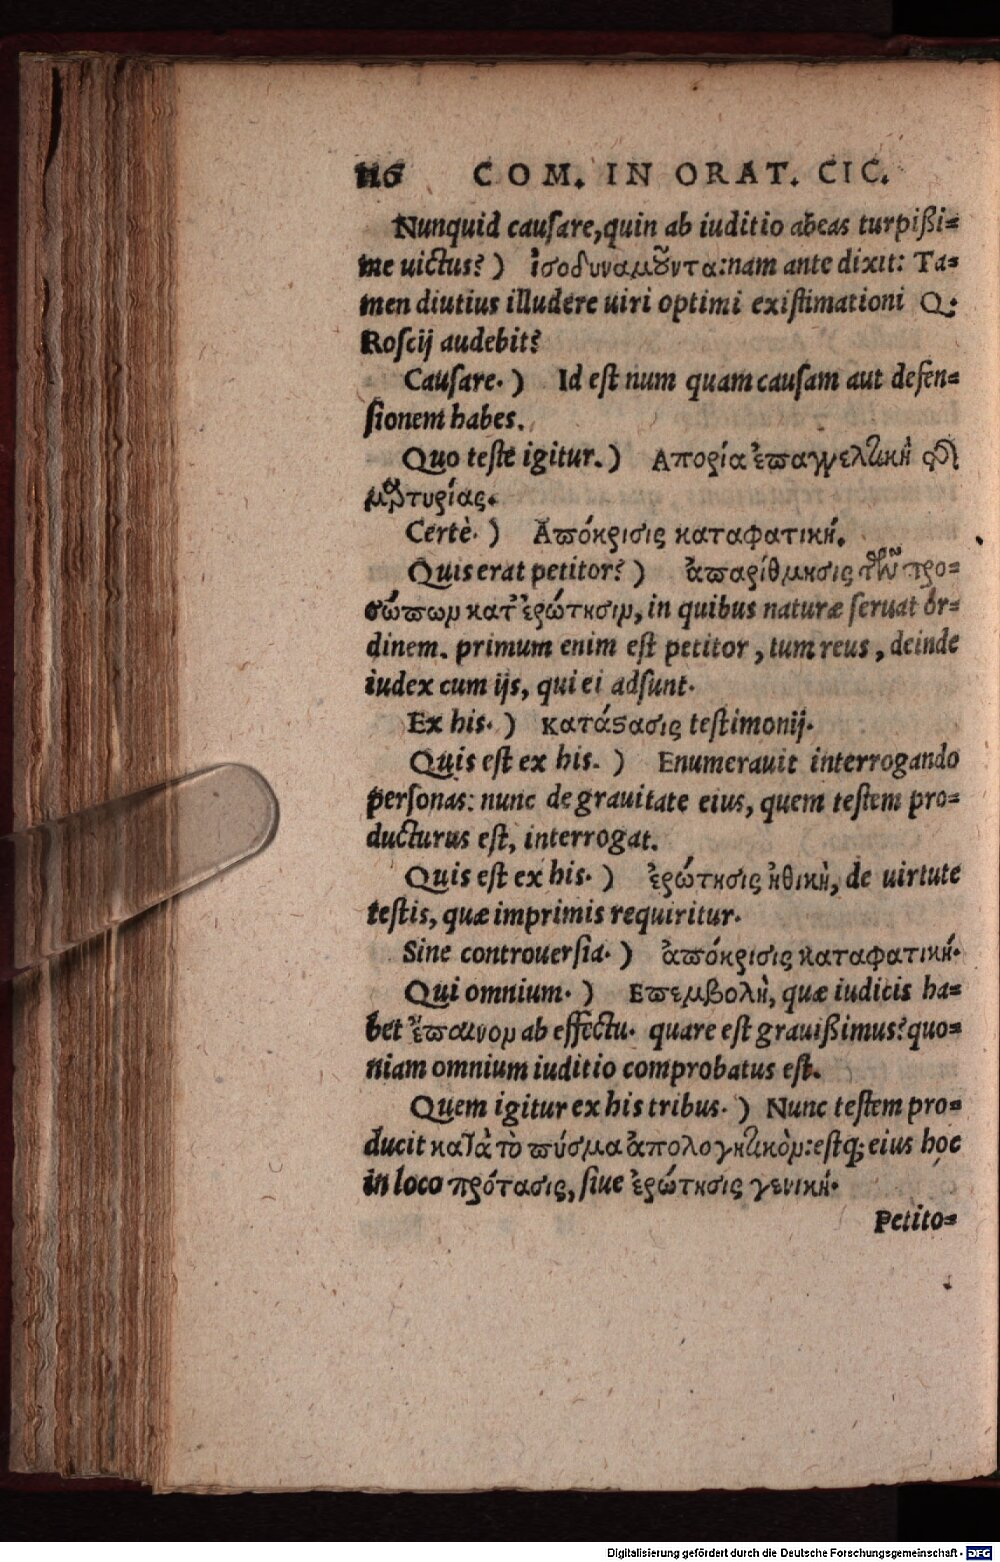 116 COM. IN ORAT. CIC.
Nunquid causare, quin ab iuditio abeas turpißi=
me uictus? ) ἰσοδυναμοῦντα: nam ante dixit: Ta=
men diutius illudere uiri optimi existimationi Q.
Roscij audebit?
Causare. ) Id est num quam causam aut defen=
sionem habes.
Quo teste igitur. ) Απορία ἐπαγγελτικὴ
μαρτυρίας.
Certè. ) Ἀπόκρισις καταφατική.
Quis erat petitor? ) ἀπαρίθμησις τῶν προ=
σώπων κατ' ἐρώτησιν, in quibus naturæ seruat or=
dinem. primum enim est petitor, tum reus, deinde
iudex cum ijs, qui ei adsunt.
Ex his. ) κατάϛασις testimonij.
Quis est ex his. ) Enumerauit interrogando
personas: nunc de grauitate eius, quem testem pro=
ducturus est, interrogat.
Quis est ex his. ) ἐρώτησις ἠθικὴ, de uirtute
testis, quæ imprimis requiritur.
Sine controuersia. ) ἀπόκρισις καταφατική.
Qui omnium. ) Επεμβολὴ, quæ iudicis ha=
bet ἔπαινον ab effectu. quare est grauißimus? quo=
niam omnium iuditio comprobatus est.
Quem igitur ex his tribus. ) Nunc testem pro=
ducit κατὰ τὸ πύσμα ἀπολογητικὸν: estq; eius hoc
in loco πρότασις, siue ἐρώτησις γενική.
Petito=
Digitalisierung gefördert durch die Deutsche Forschungsgemeinschaft - DFG